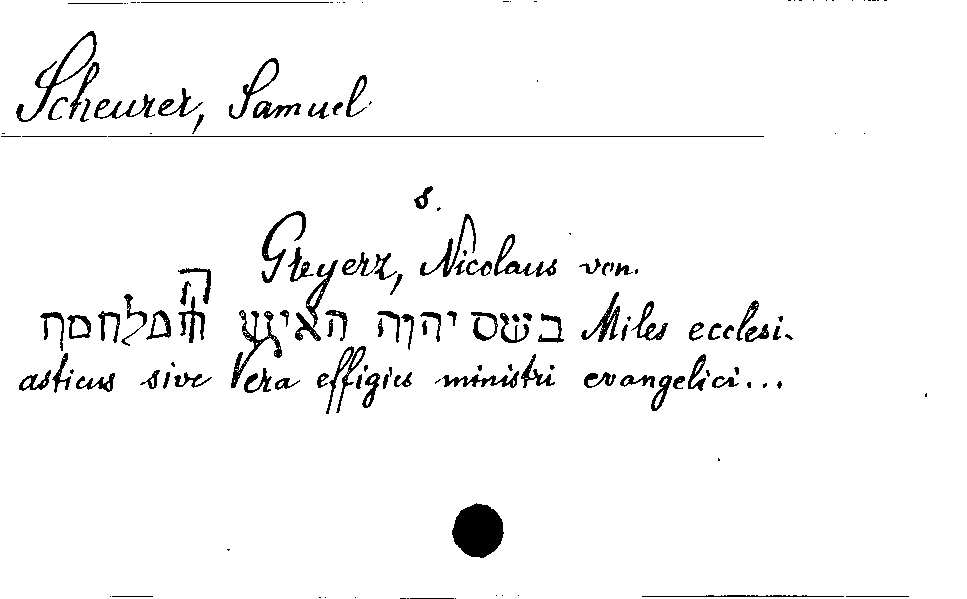 Scheurer, Samuel
s.
Greyerz, Nicolaus von.
בשם יהוה האיש המלחמה Miles ecclesi-
asticus sive Vera effigies ministri evangelici...